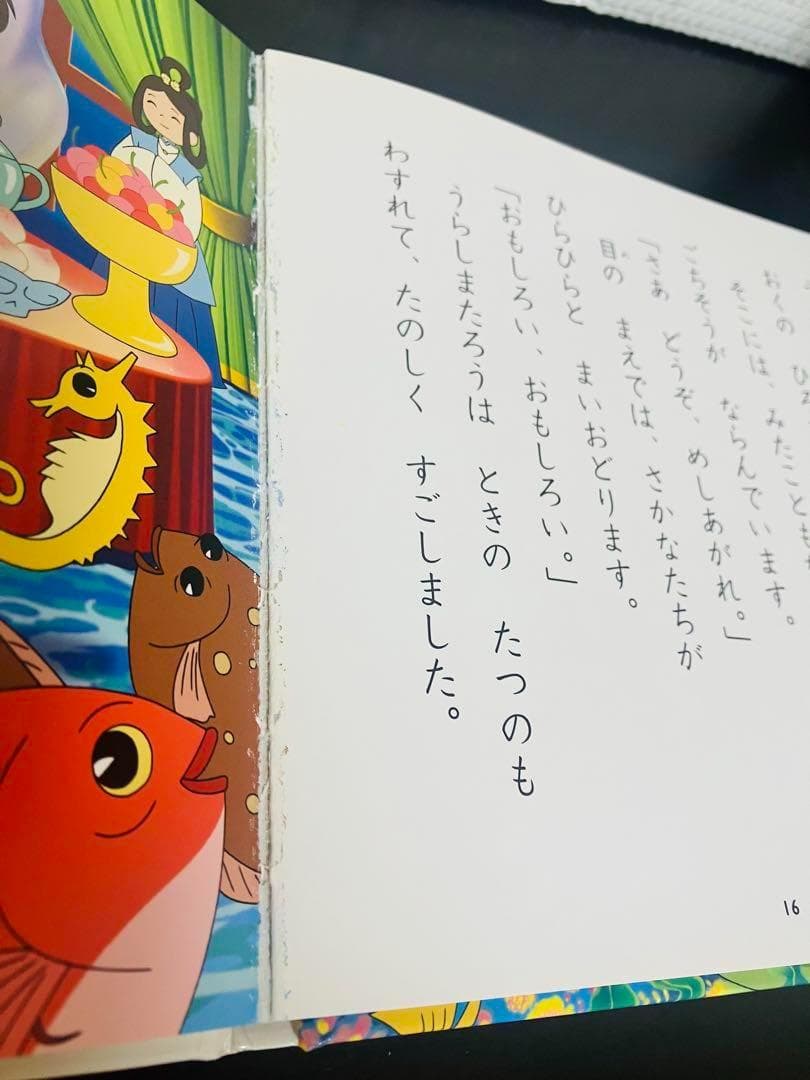 おくの
そこには、みたことも
ごちそうが ならんでいます。
「さあ どうぞ、めしあがれ。」
目の まえでは、さかなたちが
ひらひらと まいおどります。
「おもしろい、おもしろい。」
うらしまたろうは ときの たつのも
わすれて、たのしく すごしました。
16